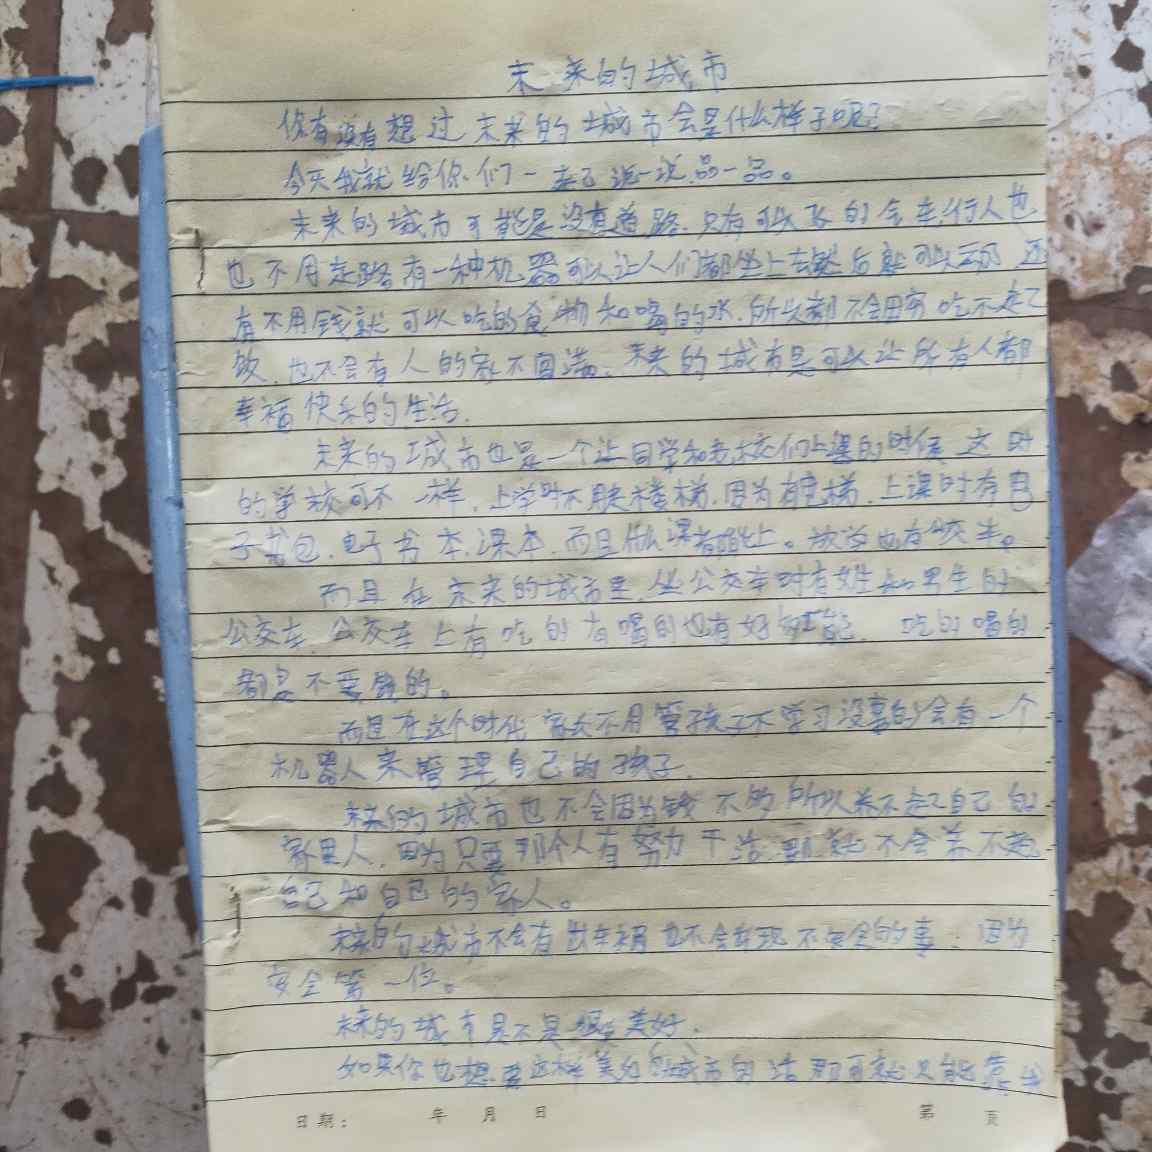 未来的城市
你有没有想过未来的城市会是什么样子呢？
今天我就给你们一起来说一说品一品。
未来的城市可能是没有道路，只有可以飞的会车，行人也
也不用走路有一种机器可以让人们都坐上去然后就可以云的，还
有不用钱就可以吃的食物和喝的水，所以都不会因穷吃不起了
饭，也不会有人的家不圆满，未来的城市是可以让所有人都
幸福快乐的生活，
未来的城市也是一个让同学和老们上课的时候，这时
的学校可不一样，上学时不用楼梯，因为有电梯，上课时有电
子书包，电子书本，课本，而且什么课都能上。放学也有校车。
而且在未来的城市里，坐公交车时有女生和男生的
公交车，公交车上有吃的有喝的也有好多功能，吃的喝的
都是不要钱的。
而且在这个时代家长不用管孩子不学习没事的会有一个
机器人来管理自己的孩子，
未来的城市也不会因为钱不够所以养不起了自己的
家里人，因为只要那个人有努力干活，那就不会养不起
自己和自己的家人。
未来的城市不会有出车祸也不会出现不安全的事，因为
安全第一位。
未来的城市是不是很美好，
如果你也想要这样美好的城市的话那可就只能靠
日期： 年 月 日 第 页